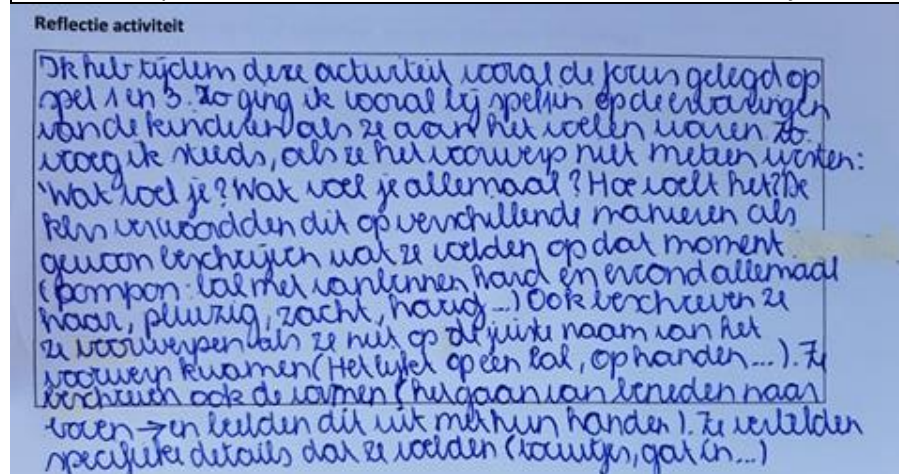 Reflectie activiteit
Ik heb tijdens deze activiteit vooral de focus gelegd op
spel 1 en 3. Zo ging ik vooral bij spel 1 in op de ervaringen
van de kinderen als ze aan het voelen waren. Zo
vroeg ik steeds, als ze het voorwerp niet meteen wisten:
'Wat voel je? Wat voel je allemaal? Hoe voelt het? De
klrs verwoordden dit op verschillende manieren als
gewoon beschrijven wat ze voelden op dat moment
(pompon: bal met vanbinnen hard en errond allemaal
haar, pluizig, zacht, harig...) Ook beschreven ze
ze voorwerpen als ze niet op de juiste naam van het
voorwerp kwamen (Het lijkt op een bal, op handen...). Ze
beschreven ook de vormen (het gaan van beneden naar
boven → en beelden dit uit met hun handen). Ze vertelden
specifieke details dat ze voelden (touwtjes, gat in...)